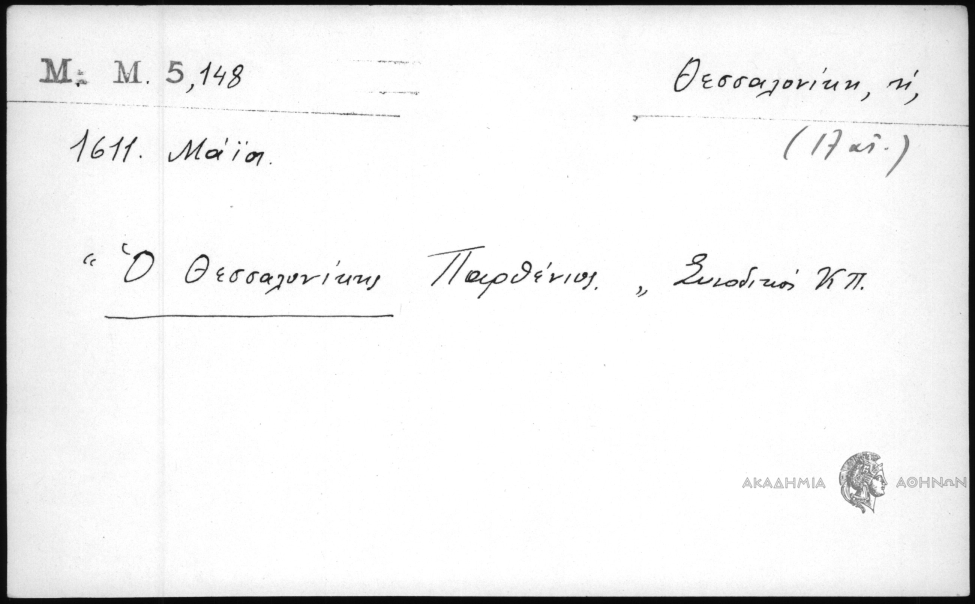 M. M. 5,148
Θεσσαλονίκη, ἡ,
1611. Μάϊος.
(17 αἰ.)
"Ὁ Θεσσαλονίκης Παρθένιος." Συνοδικοί ΚΠ.
ΑΚΑΔΗΜΙΑ ΑΘΗΝΩΝ